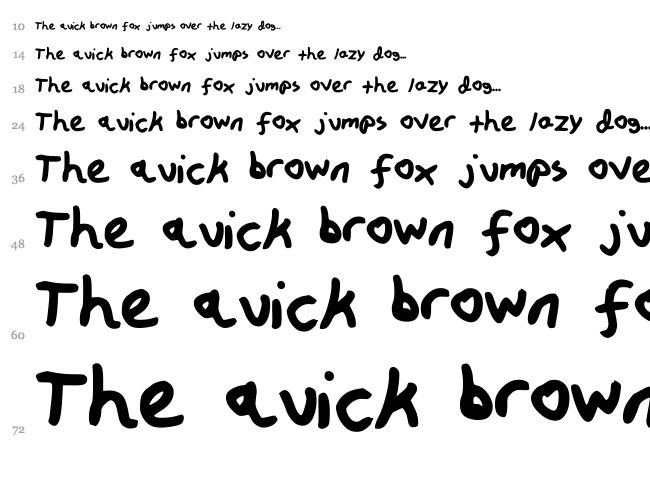 10 The quick brown fox jumps over the lazy dog...
14 The quick brown fox jumps over the lazy dog...
18 The quick brown fox jumps over the lazy dog...
24 The quick brown fox jumps over the lazy dog...
36 The quick brown fox jumps ove
48 The quick brown fox ju
60 The quick brown fo
72 The quick brown